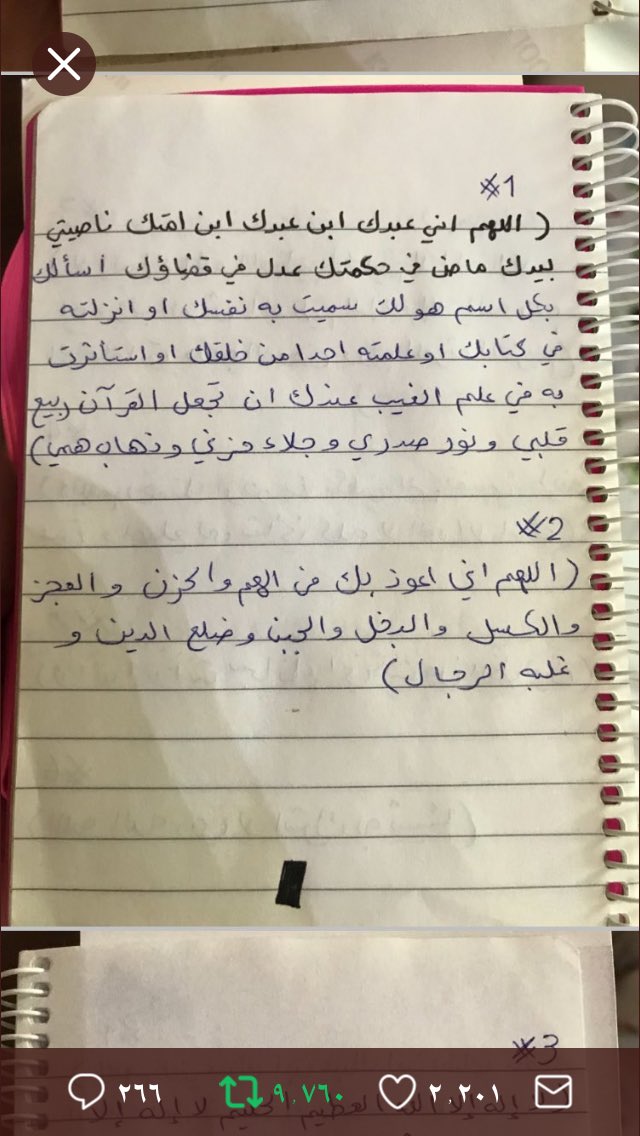 #1
( اللهم اني عبدك ابن عبدك ابن امتك ناصيتي
بيدك ماض في حكمتك عدل في قضاؤك أسألك
بكل اسم هو لك سميت به نفسك او انزلته
في كتابك او علمته احدا من خلقك او استأثرت
به في علم الغيب عندك ان تجعل القرآن ربيع
قلبي ونور صدري وجلاء حزني وذهاب همي)
#2
(اللهم اني اعوذ بك من الهم والحزن والعجز
والكسل والبخل والجبن وضلع الدين و
غلبه الرجال)
#3
إله إلا الله العظيم الحليم لا إله إلا
٢٦٦ ٩,٧٦٠ ٢,٢٠١